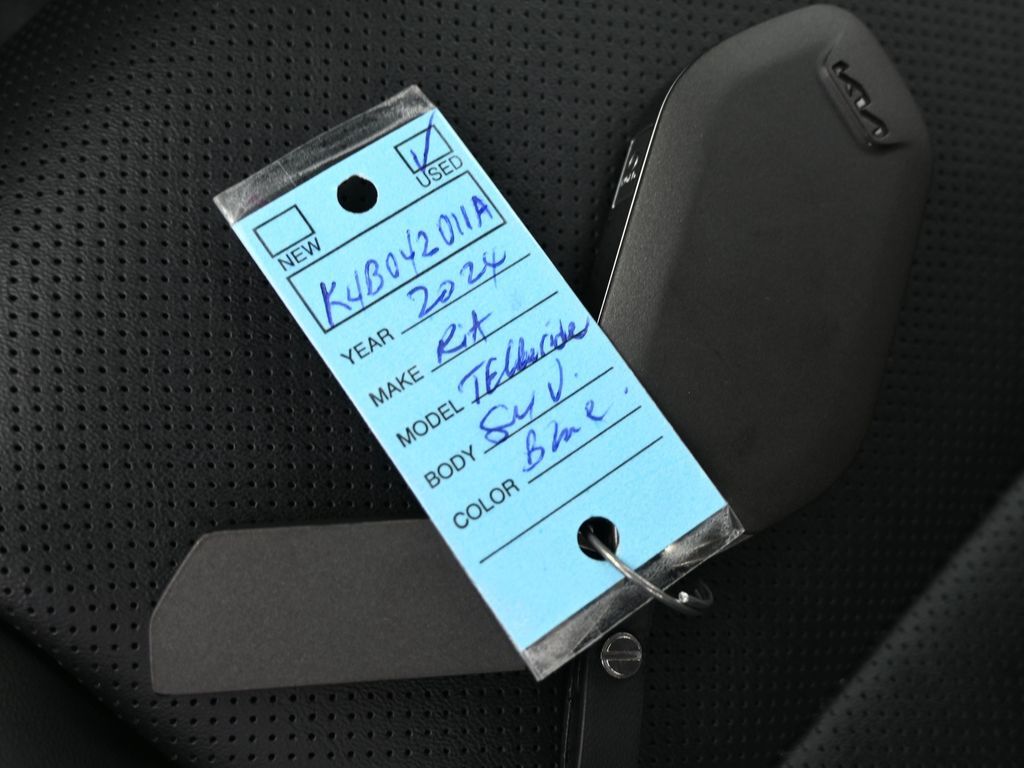 USED
NEW
K4B042011A
YEAR 2024
MAKE KiA
MODEL TElluride
BODY SUV.
COLOR Blue.
KIA